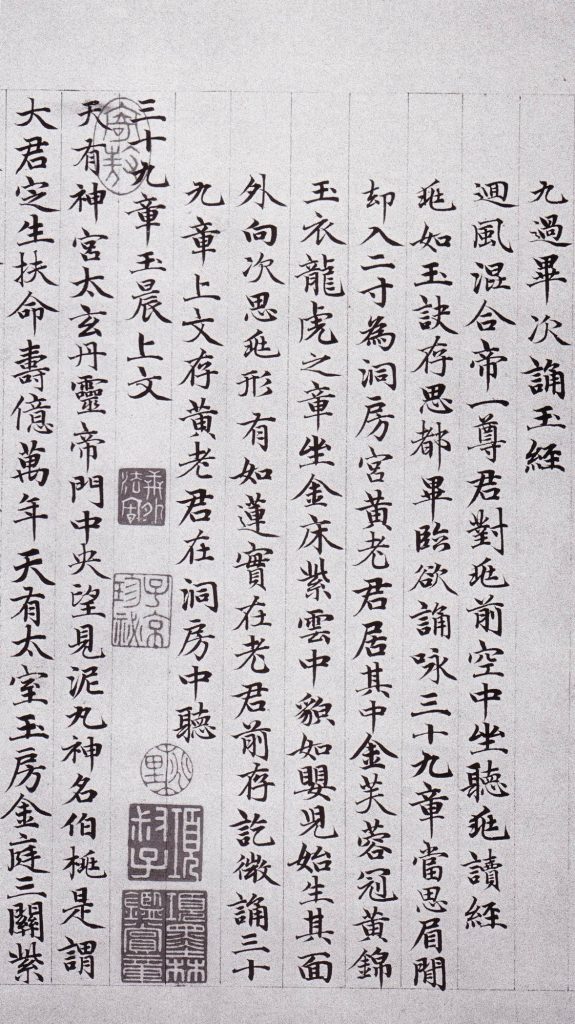 九過畢次誦玉經
迴風混合帝一尊君對兆前空中坐聽兆讀經
兆如玉訣存思都畢臨欲誦咏三十九章當思眉間
却入二寸為洞房宮黃老君居其中金芙蓉冠黃錦
玉衣龍虎之章坐金床紫雲中貌如嬰兒始生其面
外向次思兆形有如蓮實在老君前存訖微誦三十
九章上文存黃老君在洞房中聽
三十九章玉晨上文
天有神宮太玄丹靈帝門中央望見泥丸神名伯桃是謂
大君定生扶命壽億萬年天有太室玉房金庭三關紫
子京珍祕
桃里
項叔子
項墨林鑑賞章